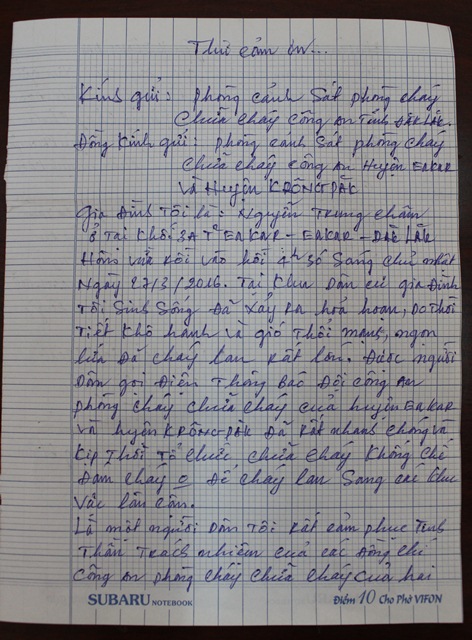 Thư cảm ơn...
Kính gửi: phòng cảnh Sát phòng cháy
Chữa cháy công An Tỉnh ĐĂK LĂK.
Đồng Kính gửi: phòng cảnh Sát phòng cháy
chữa cháy công An Huyện EAKAR
Và Huyện KRÔNG PĂK
Gia Đình Tôi là: Nguyễn Trung châm
ở Tại Khối 3A T² EAKAR - EAKAR - ĐĂK LĂK
Hôm vừa rồi vào hồi Sáng chủ nhật
Ngày 27/3/2016. Tại Khu Dân cư gia Đình
Tôi Sinh Sống Đã Xảy Ra hoả hoạn, Do Thời
Tiết Khô hanh và gió Thổi mạnh, ngọn
lửa Đã cháy lan Rất lớn. Được người
Dân gọi Điện Thông Báo Đội công An
phòng cháy chữa cháy của huyện EAKAR
Và huyện KRÔNG PĂK Đã Rất nhanh chóng và
Kịp Thời Tổ chức chữa cháy Khống Chế
Đám cháy Để cháy lan Sang các Khu
Vực lân cận.
Là một người Dân Tôi Rất cảm phục Tinh
Thần Trách nhiệm của các Đồng chí
Công An phòng cháy chữa cháy của hai
SUBARU NOTEBOOK
Điểm 10 Cho Phở VIFON